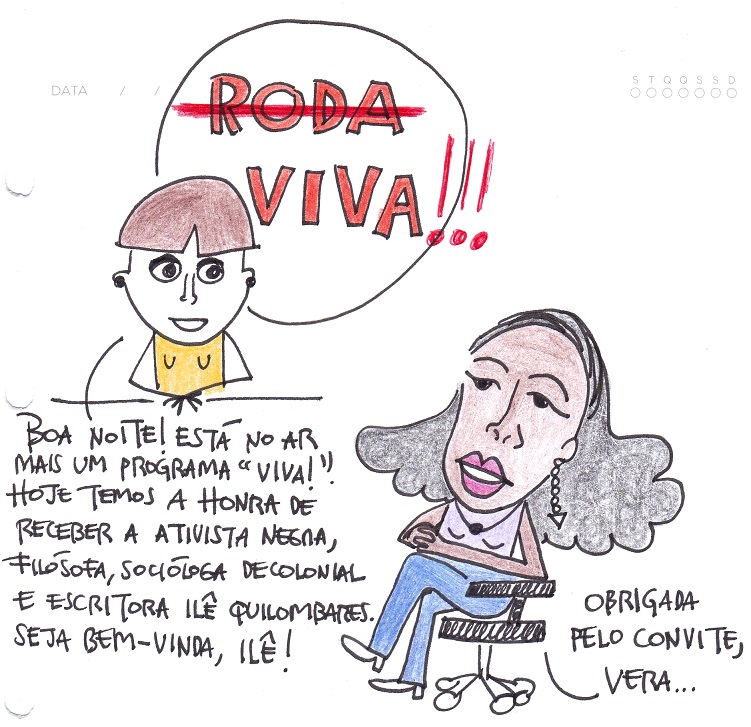 DATA / /
S T Q Q S S D
RODA
VIVA!!!
BOA NOITE! ESTÁ NO AR
MAIS UM PROGRAMA "VIVA!"!
HOJE TEMOS A HONRA DE
RECEBER A ATIVISTA NEGRA,
FILÓSOFA, SOCIÓLOGA DECOLONIAL
E ESCRITORA ILÊ QUILOMBARES.
SEJA BEM-VINDA, ILÊ!
OBRIGADA
PELO CONVITE,
VERA...